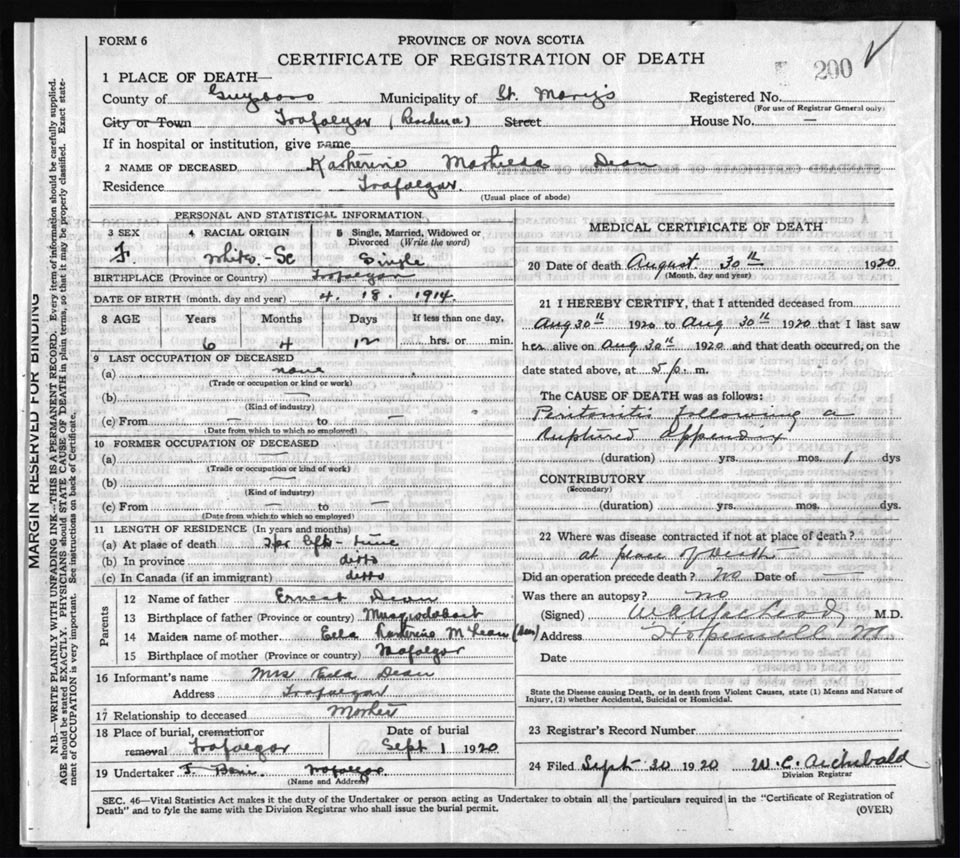 FORM 6
PROVINCE OF NOVA SCOTIA
CERTIFICATE OF REGISTRATION OF DEATH
200
1 PLACE OF DEATH—
County of Guysboro Municipality of St. Mary's Registered No.
(For use of Registrar General only)
City or Town Trafalgar (Residence) Street House No. —
If in hospital or institution, give name
2 NAME OF DECEASED Katherine Matilda Dean
Residence Trafalgar
(Usual place of abode)
PERSONAL AND STATISTICAL INFORMATION
3 SEX 4 RACIAL ORIGIN 5 Single, Married, Widowed or Divorced (Write the word)
F. White - Sc Single
BIRTHPLACE (Province or Country) Trafalgar
DATE OF BIRTH (month, day and year) 4. 18. 1914
8 AGE Years Months Days If less than one day,
6 4 12 hrs. or min.
9 LAST OCCUPATION OF DECEASED
(a) none
(Trade or occupation or kind or work)
(b) —
(Kind of industry)
(c) From — to —
(Date from which to which so employed)
10 FORMER OCCUPATION OF DECEASED
(a) —
(Trade or occupation or kind of work)
(b) —
(Kind of industry)
(c) From — to —
(Date from which to which so employed)
11 LENGTH OF RESIDENCE (In years and months)
(a) At place of death life-time
(b) In province ditto
(c) In Canada (if an immigrant) ditto
Parents
12 Name of father Ernest Dean
13 Birthplace of father (Province or country) Musquodoboit
14 Maiden name of mother Katherine McLean (Dean)
15 Birthplace of mother (Province or country) Trafalgar
16 Informant's name Mrs Dean
Address Trafalgar
17 Relationship to deceased Mother
18 Place of burial, cremation or removal Trafalgar
Date of burial Sept 1 1920
19 Undertaker Trafalgar
(Name and Address)
MEDICAL CERTIFICATE OF DEATH
20 Date of death August 30th 1920
(Month, day and year)
21 I HEREBY CERTIFY, that I attended deceased from
Aug 30th 1920 to Aug 30th 1920 that I last saw
her alive on Aug 30th 1920 and that death occurred, on the
date stated above, at 5 p. m.
The CAUSE OF DEATH was as follows:
Peritonitis following a
ruptured appendix
(duration) yrs. mos. 1 dys
CONTRIBUTORY
(Secondary)
(duration) yrs. mos. dys.
22 Where was disease contracted if not at place of death?
at place of Death
Did an operation precede death? No Date of —
Was there an autopsy? no
(Signed) M.D.
Address Hopewell
Date
State the Disease causing Death, or in death from Violent Causes, state (1) Means and Nature of
Injury, (2) whether Accidental, Suicidal or Homicidal.
23 Registrar's Record Number
24 Filed Sept 30 1920 W. C. Archibald
Division Registrar
SEC. 46—Vital Statistics Act makes it the duty of the Undertaker or person acting as Undertaker to obtain all the particulars required in the "Certificate of Registration of
Death" and to fyle the same with the Division Registrar who shall issue the burial permit.
(OVER)
MARGIN RESERVED FOR BINDING
N.B.—WRITE PLAINLY WITH UNFADING INK—THIS IS A PERMANENT RECORD. Every item of information should be carefully supplied.
AGE should be stated EXACTLY. PHYSICIANS should STATE CAUSE OF DEATH in plain terms, so that it may be properly classified. Exact state-
ment of OCCUPATION is very important. See instructions on back of Certificate.